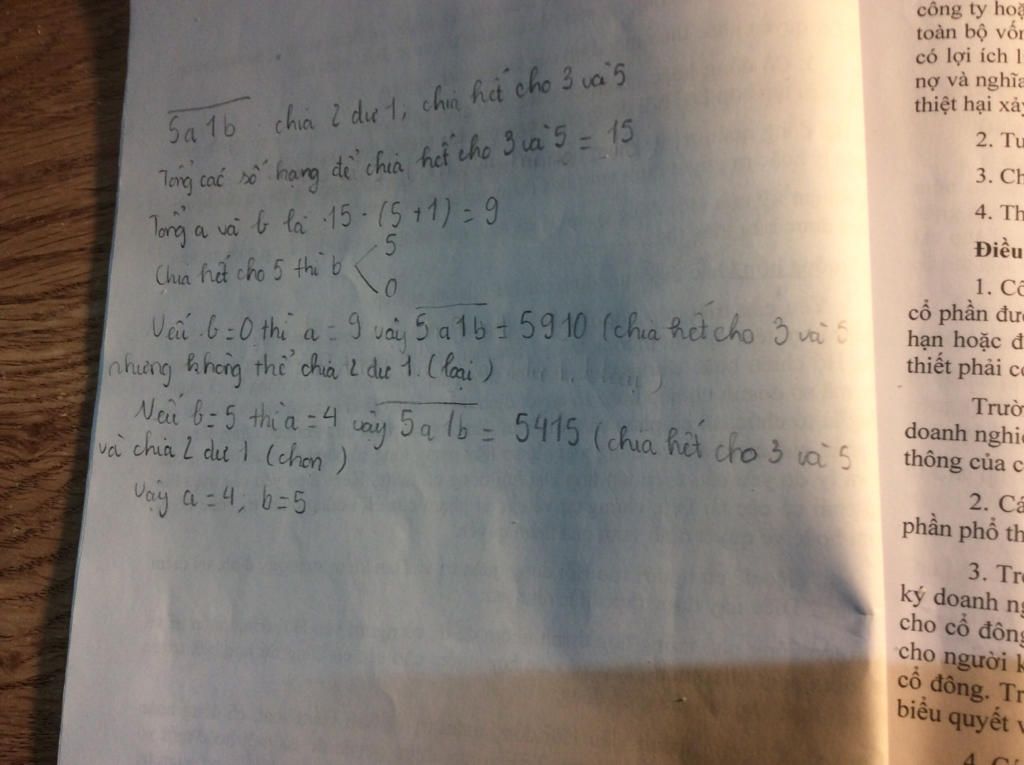 5a1b chia 2 dư 1, chia hết cho 3 và 5
Tổng các số hạng để chia hết cho 3 và 5 = 15
Tổng a và b là 15 - (5 + 1) = 9
Chia hết cho 5 thì b < 5
0
Nếu b = 0 thì a = 9 vậy 5a1b = 5910 (chia hết cho 3 và 5
nhưng không thể chia 2 dư 1. (loại)
Nếu b = 5 thì a = 4 vậy 5a1b = 5415 (chia hết cho 3 và 5
và chia 2 dư 1 (chọn)
Vậy a = 4; b = 5
công ty hoặ
toàn bộ vốn
có lợi ích l
nợ và nghĩa
thiệt hại xảy
2. Tu
3. Ch
4. Th
Điều
1. Cổ
cổ phần đư
hạn hoặc đ
thiết phải c
Trườ
doanh nghi
thông của c
2. Cá
phần phổ th
3. Tr
ký doanh ng
cho cổ đông
cho người k
cổ đông. Tr
biểu quyết v